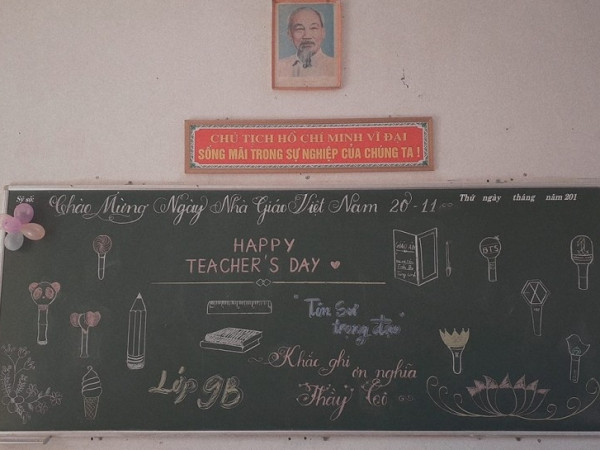 CHỦ TỊCH HỒ CHÍ MINH VĨ ĐẠI
SỐNG MÃI TRONG SỰ NGHIỆP CỦA CHÚNG TA !
Sĩ số:
Chào Mừng Ngày Nhà Giáo Việt Nam 20-11
Thứ ngày tháng năm 201
HAPPY
TEACHER'S DAY
BTS
"Tôn Sư
trọng đạo"
Khắc ghi ơn nghĩa
Thầy Cô
Lớp 9B